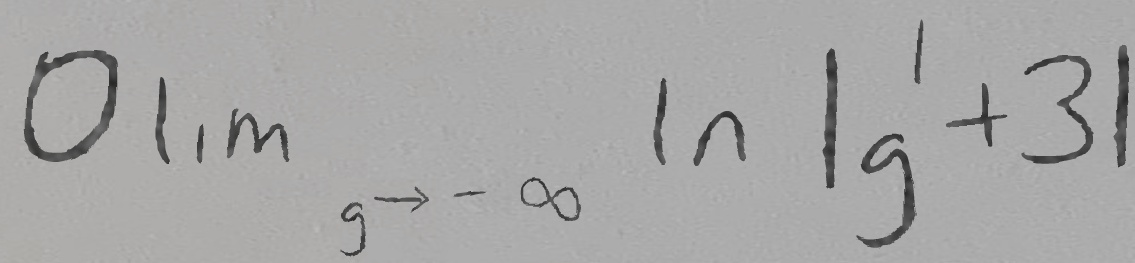 0 lim_{g \to -\infty} ln |g^1 + 3|